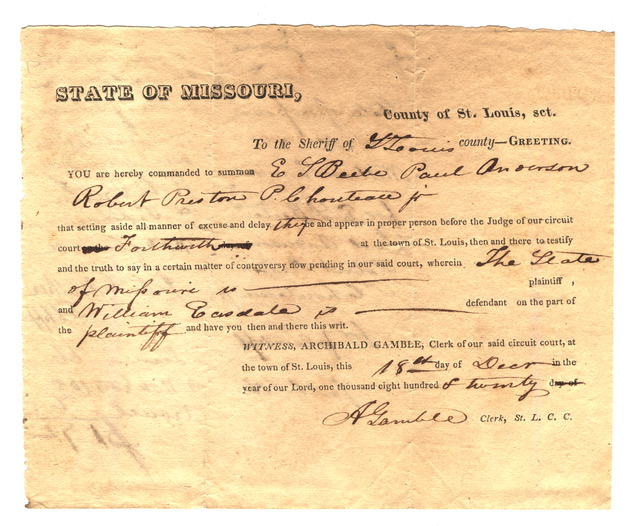 STATE OF MISSOURI,
County of St. Louis, sct.
To the Sheriff of St Louis county—GREETING.
YOU are hereby commanded to summon E S Beebe Paul Anderson
Robert Preston P. Chouteau jr
that setting aside all manner of excuse and delay they be and appear in proper person before the Judge of our circuit
court Forthwith at the town of St. Louis, then and there to testify
and the truth to say in a certain matter of controversy now pending in our said court, wherein The State
of Missouri is plaintiff ,
and William Easdale is defendant on the part of
the plaintiff and have you then and there this writ.
WITNESS, ARCHIBALD GAMBLE, Clerk of our said circuit court, at
the town of St. Louis, this 18th day of Decr in the
year of our Lord, one thousand eight hundred & twenty day of
A Gamble Clerk, St. L. C. C.